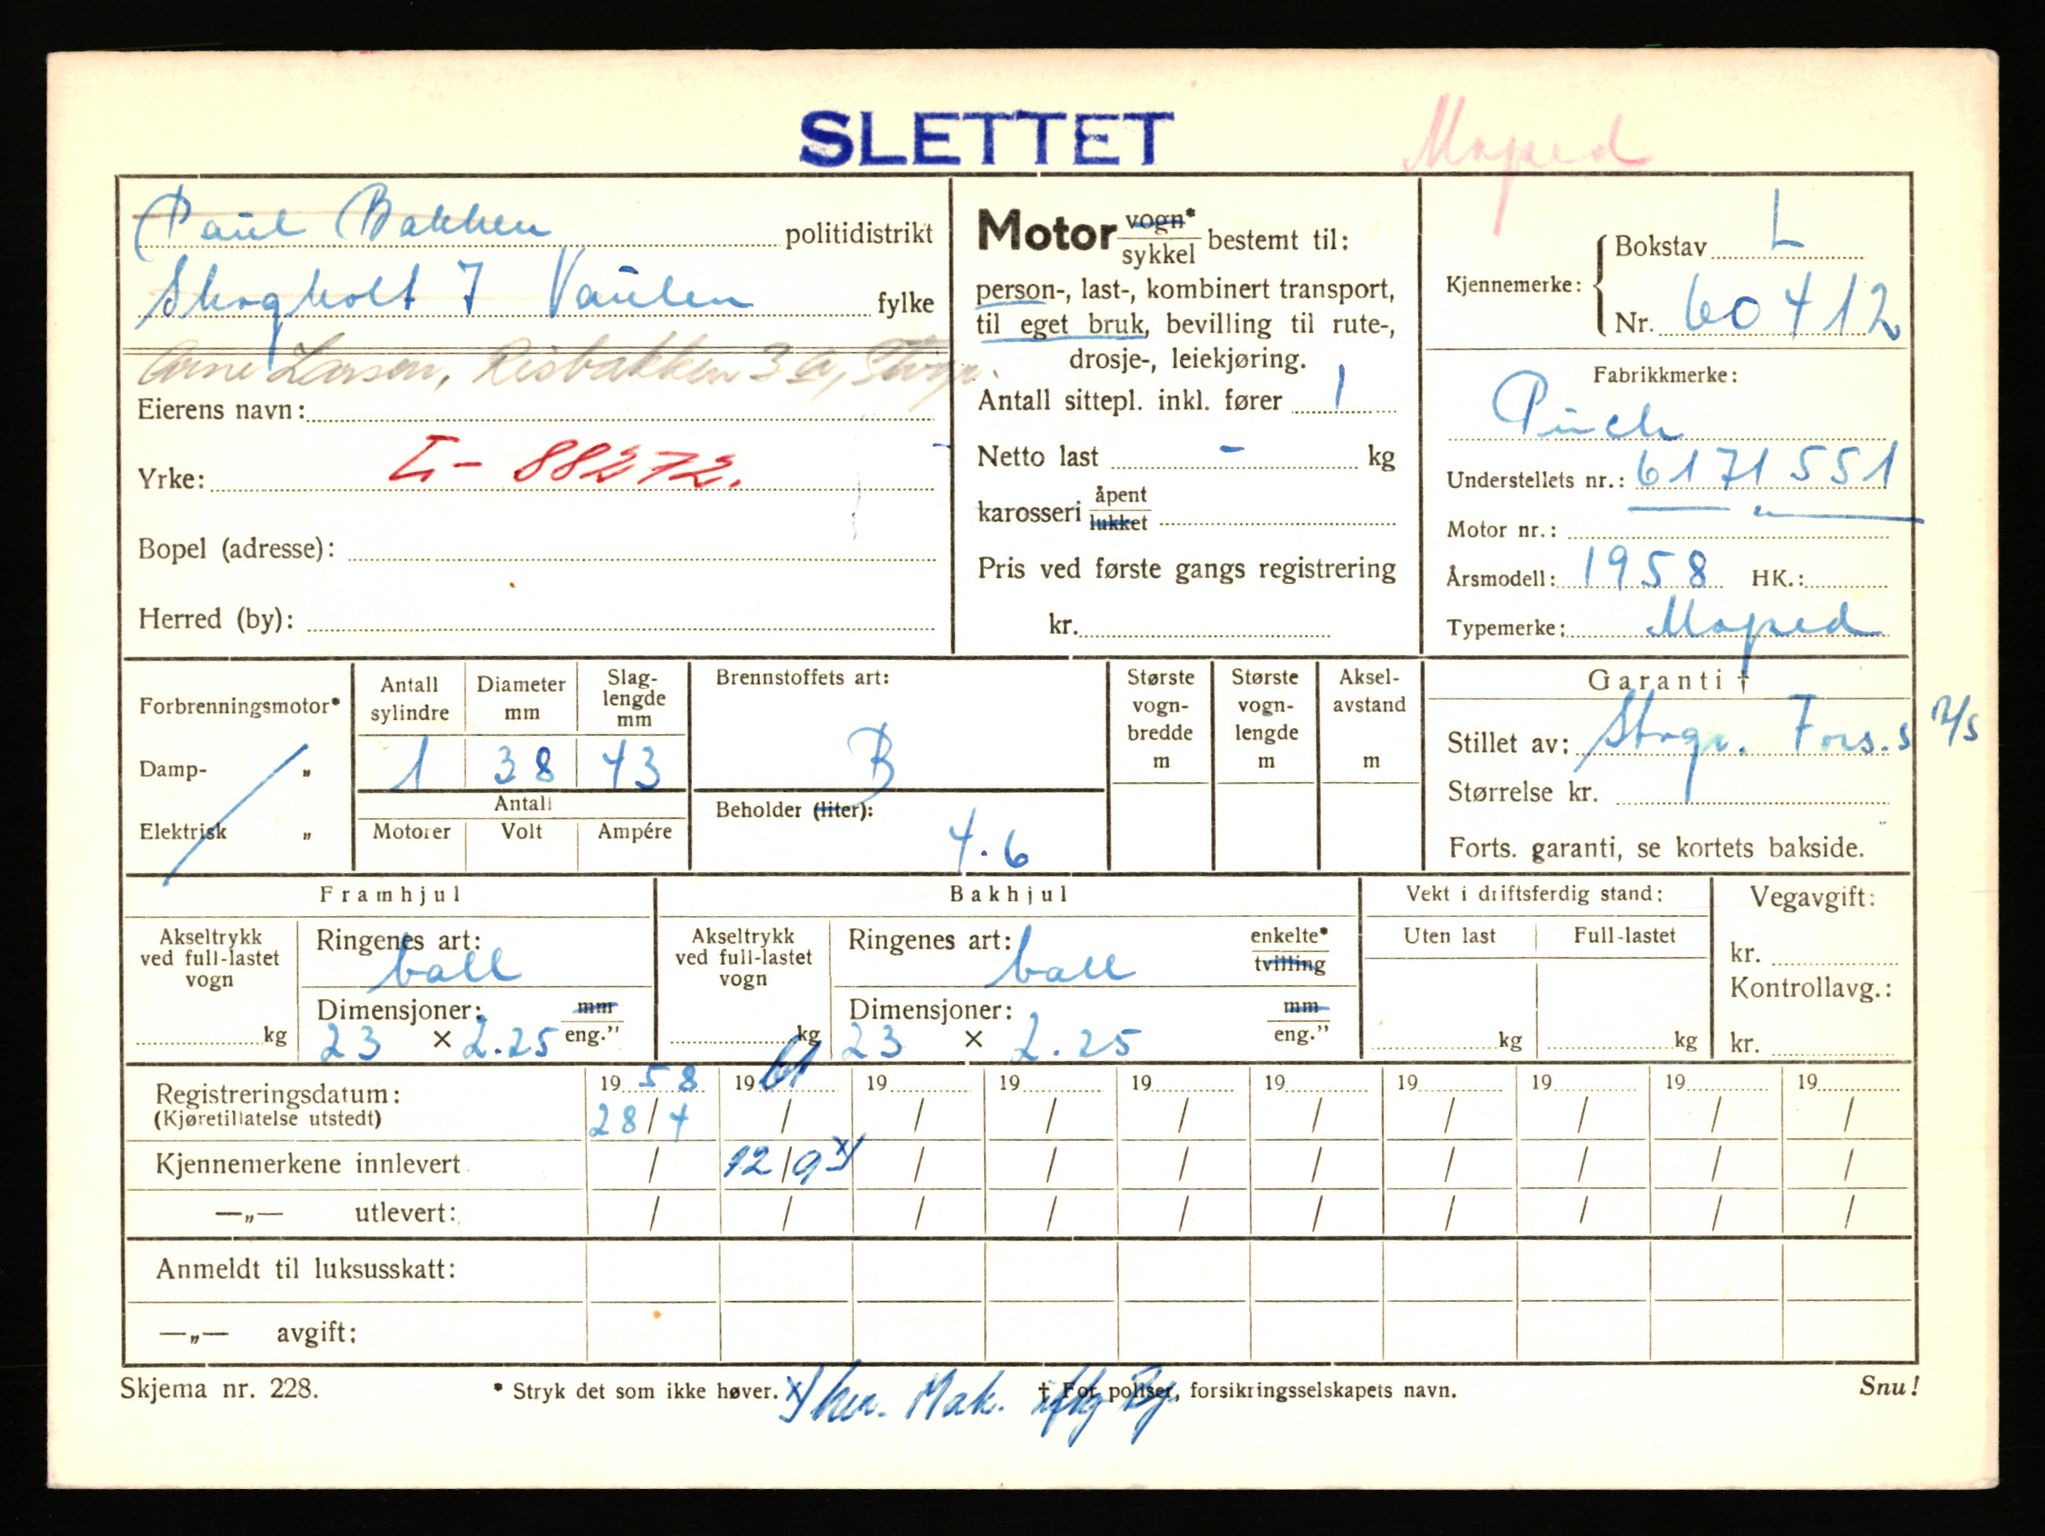 SLETTET
Moped
Paul Bakken politidistrikt
Skogholt 7 Vaulen fylke
Arne Larsen, Risbakken 3 a, Stvgr.
Eierens navn:
Yrke: L- 88272.
Bopel (adresse):
Herred (by):
Motor vogn* sykkel bestemt til:
person-, last-, kombinert transport,
til eget bruk, bevilling til rute-,
drosje-, leiekjøring.
Antall sittepl. inkl. fører 1
Netto last - kg
karosseri åpent lukket
Pris ved første gangs registrering
kr.
Kjennemerke: Bokstav L
Nr. 60412
Fabrikkmerke:
Puch
Understellets nr.: 6171551
Motor nr.:
Årsmodell: 1958 HK.:
Typemerke: Moped
Forbrenningsmotor*
Damp- „
Elektrisk „
Antall sylindre Diameter mm Slag-lengde mm
1 38 43
Antall
Motorer Volt Ampére
Brennstoffets art:
B
Beholder (liter):
4.6
Største vogn-bredde m
Største vogn-lengde m
Aksel-avstand m
Garanti †
Stillet av: Stvgr. Fors.s 2/5
Størrelse kr.
Forts. garanti, se kortets bakside.
Framhjul
Akseltrykk ved full-lastet vogn
kg
Ringenes art:
ball
Dimensjoner: mm
23 × 2.25 eng.”
Bakhjul
Akseltrykk ved full-lastet vogn
kg
Ringenes art: enkelte* tvilling
ball
Dimensjoner: mm
23 × 2.25 eng.”
Vekt i driftsferdig stand:
Uten last Full-lastet
kg kg
Vegavgift:
kr.
Kontrollavg.:
kr.
Registreringsdatum: 19 58 19 61 19 19 19 19 19 19 19 19
(Kjøretillatelse utstedt) 28/4 / / / / / / / / /
Kjennemerkene innlevert / 12/9 x) / / / / / / / /
—„— utlevert: / / / / / / / / / /
Anmeldt til luksusskatt:
—„— avgift:
Skjema nr. 228. * Stryk det som ikke høver. † For poliser, forsikringsselskapets navn. Snu!
x)